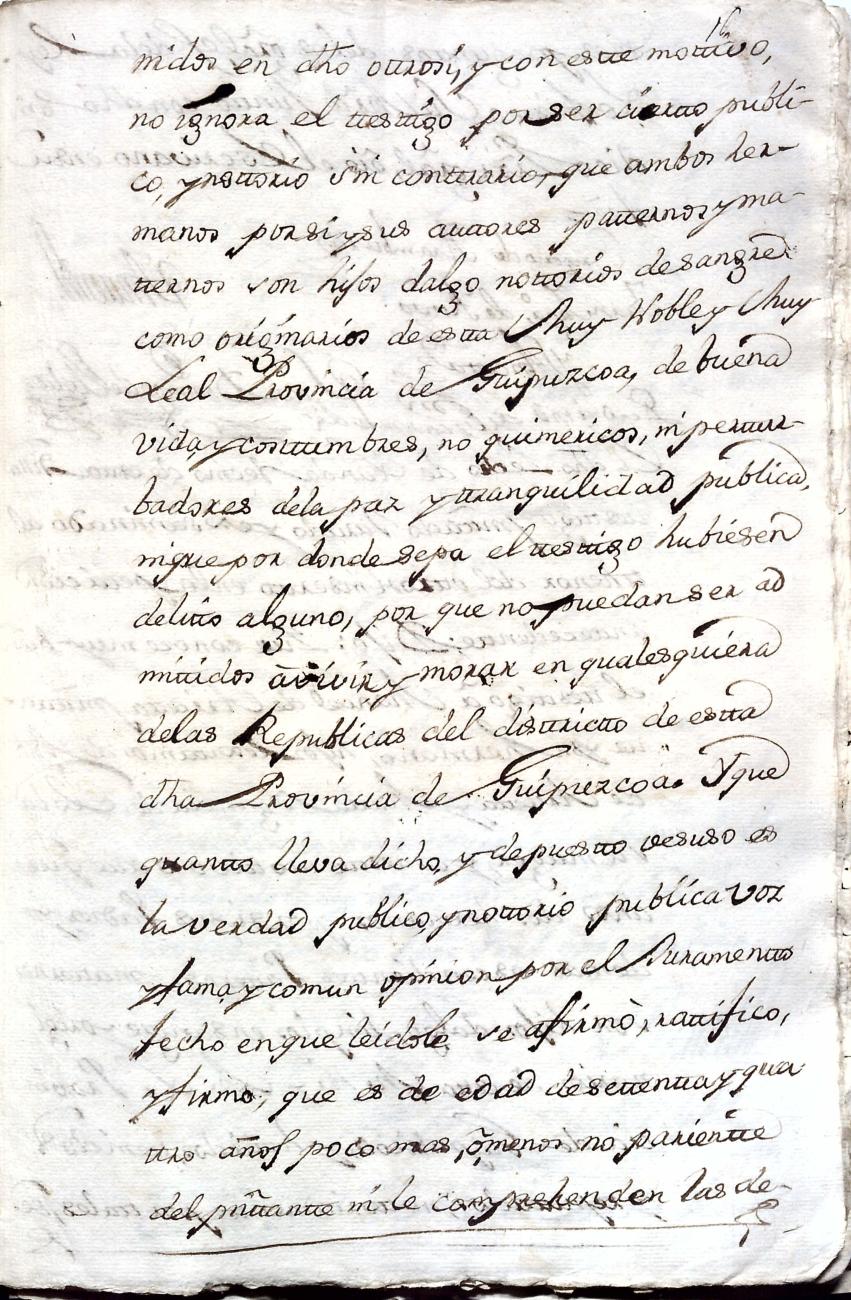 16
nidos en dho ottrosi, y con estte mottivo,
no ignora el ttesttigo por ser ciertto publi-
co, ynottorio sin conttrario, que ambos her-
manos por si y sus auttores patternos y ma-
tternos son hijos dalgo nottorios de sangre
como originarios de estta Muy Noble y Muy
Leal Provincia de Guipuzcoa, de buena
vida, y costtumbres, no quimericos, ni perttur-
badores dela paz y ttranquilidad publica,
nique por donde sepa el ttesttigo hubiesen
delitto alguno, por que no puedan ser ad
mittidos a vivir y morar en quales quiera
delas Republicas del disttricto de estta
dha Provincia de Guipuzcoa. Y que
quantto lleva dicho, y depuestto desuso es
la verdad publico, ynottorio publica voz
y fama, y comun opinion por el Juramentto
fecho en que leidole se afirmò, rattifico,
y firmo, que es de edad de settentta y qua
ttro años poco mas, ò menos no parientte
del pñttante ni le comprehenden las de-